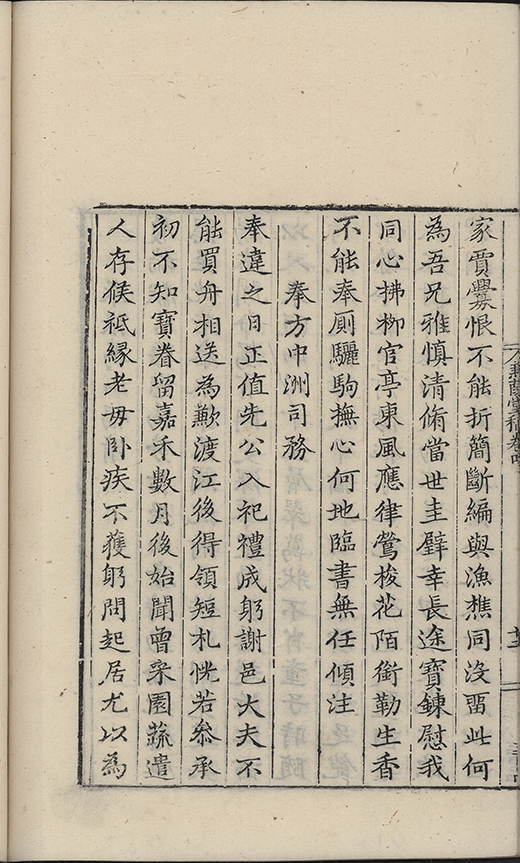 家賣爨恨不能折簡斷編與漁樵同沒畱此何
為吾兄雅慎清脩當世圭璧幸長途寶鍊慰我
同心拂柳官亭東風應律鶯梭花陌銜勒生香
不能奉厠驪駒撫心何地臨書無任傾注
奉方中洲司務
奉違之日正值先公入祀禮成躬謝邑大夫不
能買舟相送為歉渡江後得領短札恍若叅承
初不知寶眷留嘉禾數月後始聞曾采園蔬遣
人存候祗緣老毋卧疾不獲躬問起居尤以為